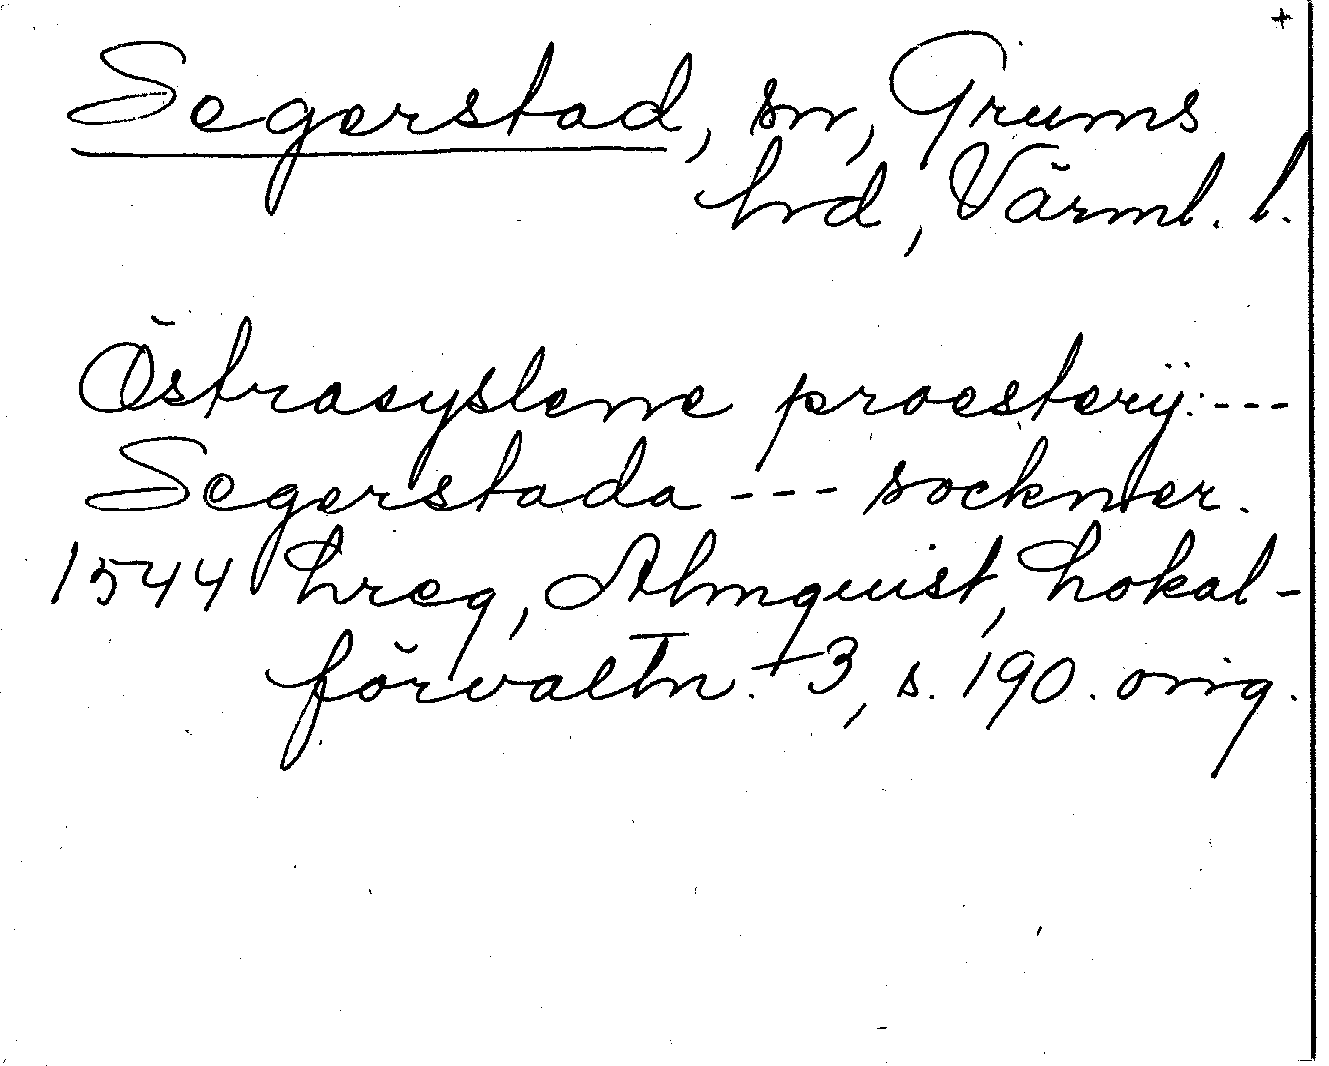 +
Segerstad, sn, Grums
hrd, Värml. l.
Östrasyslenne proesterij: ---
Segerstada --- sockner.
1544 hreg, Almquist, Lokal-
förvaltn. 3, s. 190. orig.